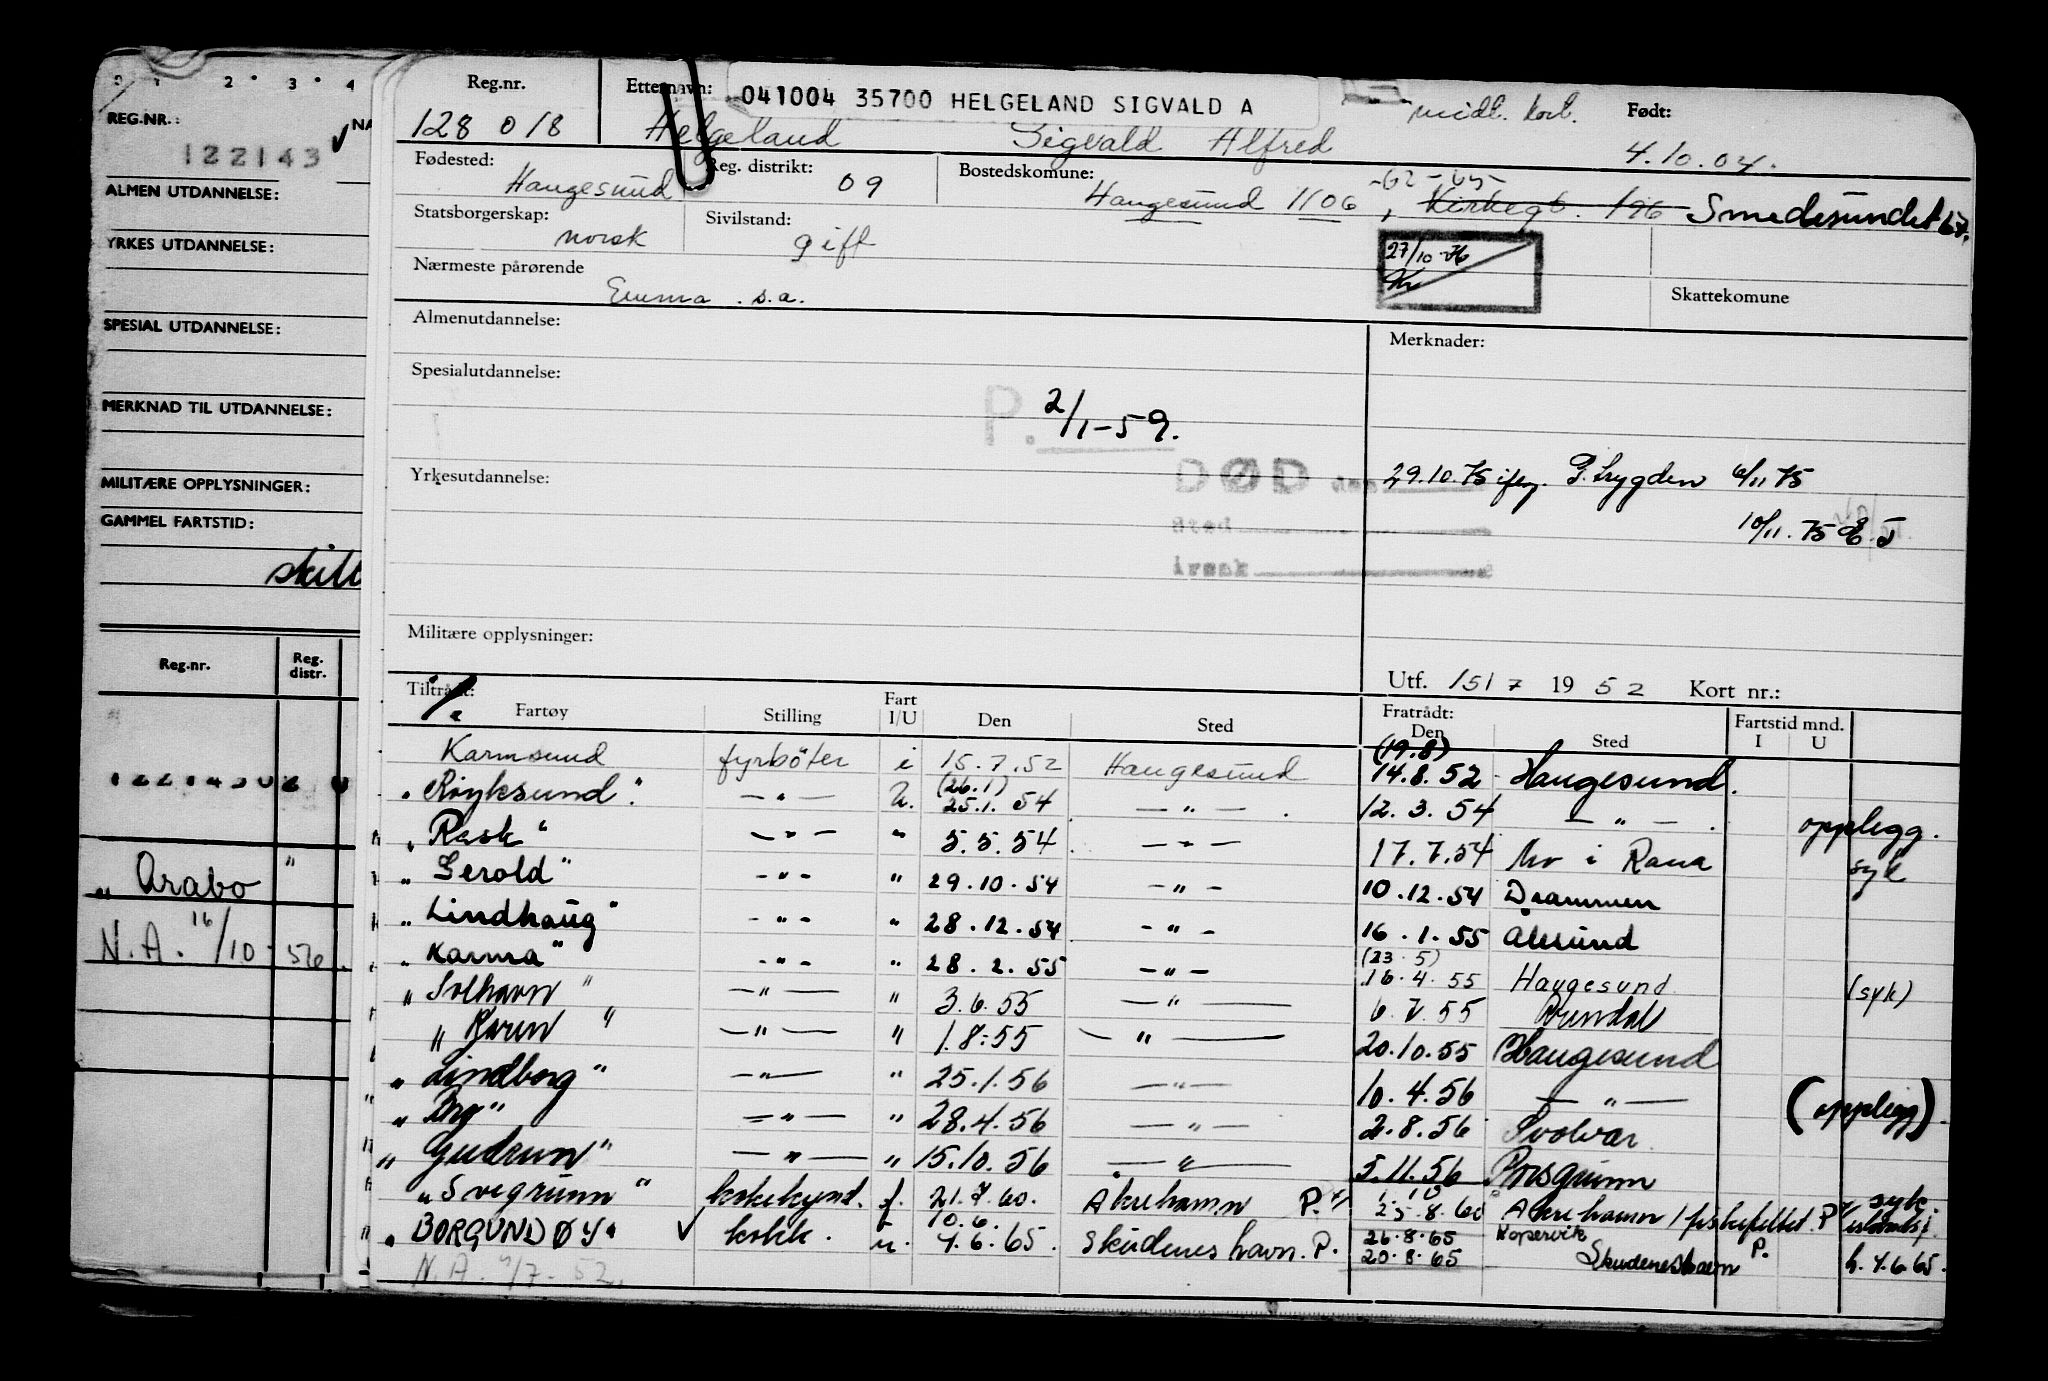 0 1 2 3 4
REG.NR.: NA
122143
ALMEN UTDANNELSE:
YRKES UTDANNELSE:
SPESIAL UTDANNELSE:
MERKNAD TIL UTDANNELSE:
MILITÆRE OPPLYSNINGER:
GAMMEL FARTSTID:
Reg.nr. Reg. distr.
„ Arabo "
N.A. 16/10-56.
Reg.nr. Etternavn: 041004 35700 HELGELAND SIGVALD A midl. kort. Født:
128 018 Helgeland Sigvald Alfred 4.10.04.
Fødested: Haugesund Reg. distrikt: 09 Bostedskomune: Haugesund 1106, Kirkegt. 196 Smedesundet 67.
Statsborgerskap: norsk Sivilstand: gift
27/10
Nærmeste pårørende Emma s.a. Skattekomune
Almenutdannelse: Merknader:
Spesialutdannelse:
P. 2/1-59.
Yrkesutdannelse: DØD den 29.10.75 iflg. P.trygden 6/11 75
Sted 10/11.75
Årsak
Militære opplysninger:
Utf. 15/7 1952 Kort nr.:
Tiltrådt: Fratrådt: Fartstid mnd.
Fartøy Stilling Fart I/U Den Sted Den Sted I U
Karmsund fyrbøter i 15.7.52 Haugesund (19.8) 14.8.52 Haugesund.
„Røyksund" — " — U. (26.1) 25.1.54 — " — 12.3.54 — " — opplegg.
„Rask" — " — " 5.5.54 — " — 17.7.54 Mo i Rana syk
„Gerold" - " - " 29.10.54 - " - 10.12.54 Drammen
„Lindhaug" - " - " 28.12.54 - " - 16.1.55 Ålesund
„Karma" - " - " 28.2.55 - " - (23.5) 16.4.55 Haugesund (syk)
„Solhavn" — " — " 3.6.55 — " — 6.7.55 Arendal
„Karen" — " — " 1.8.55 — " — 20.10.55 Haugesund
„Lindborg" — " — " 25.1.56 — " — 10.4.56 — " — (opplegg).
„Brg" — " — " 28.4.56 — " — 2.8.56 Svolvær.
„Gudrun" — " — " 15.10.56 — " — 5.11.56 Porsgrunn syk
„Svegrunn" kokekynd. f. 21.7.60. Åkrehamn P. 25.8.60 Åkrehamn / fiskefeltet P
„BORGUNDØY" kokk. u. 10.6. 4.6.65. Skudeneshavn. P. 26.8.65 Kopervik
20.8.65 Skudeneshavn P. h. 4.6.65.
N.A. 9/7-52.